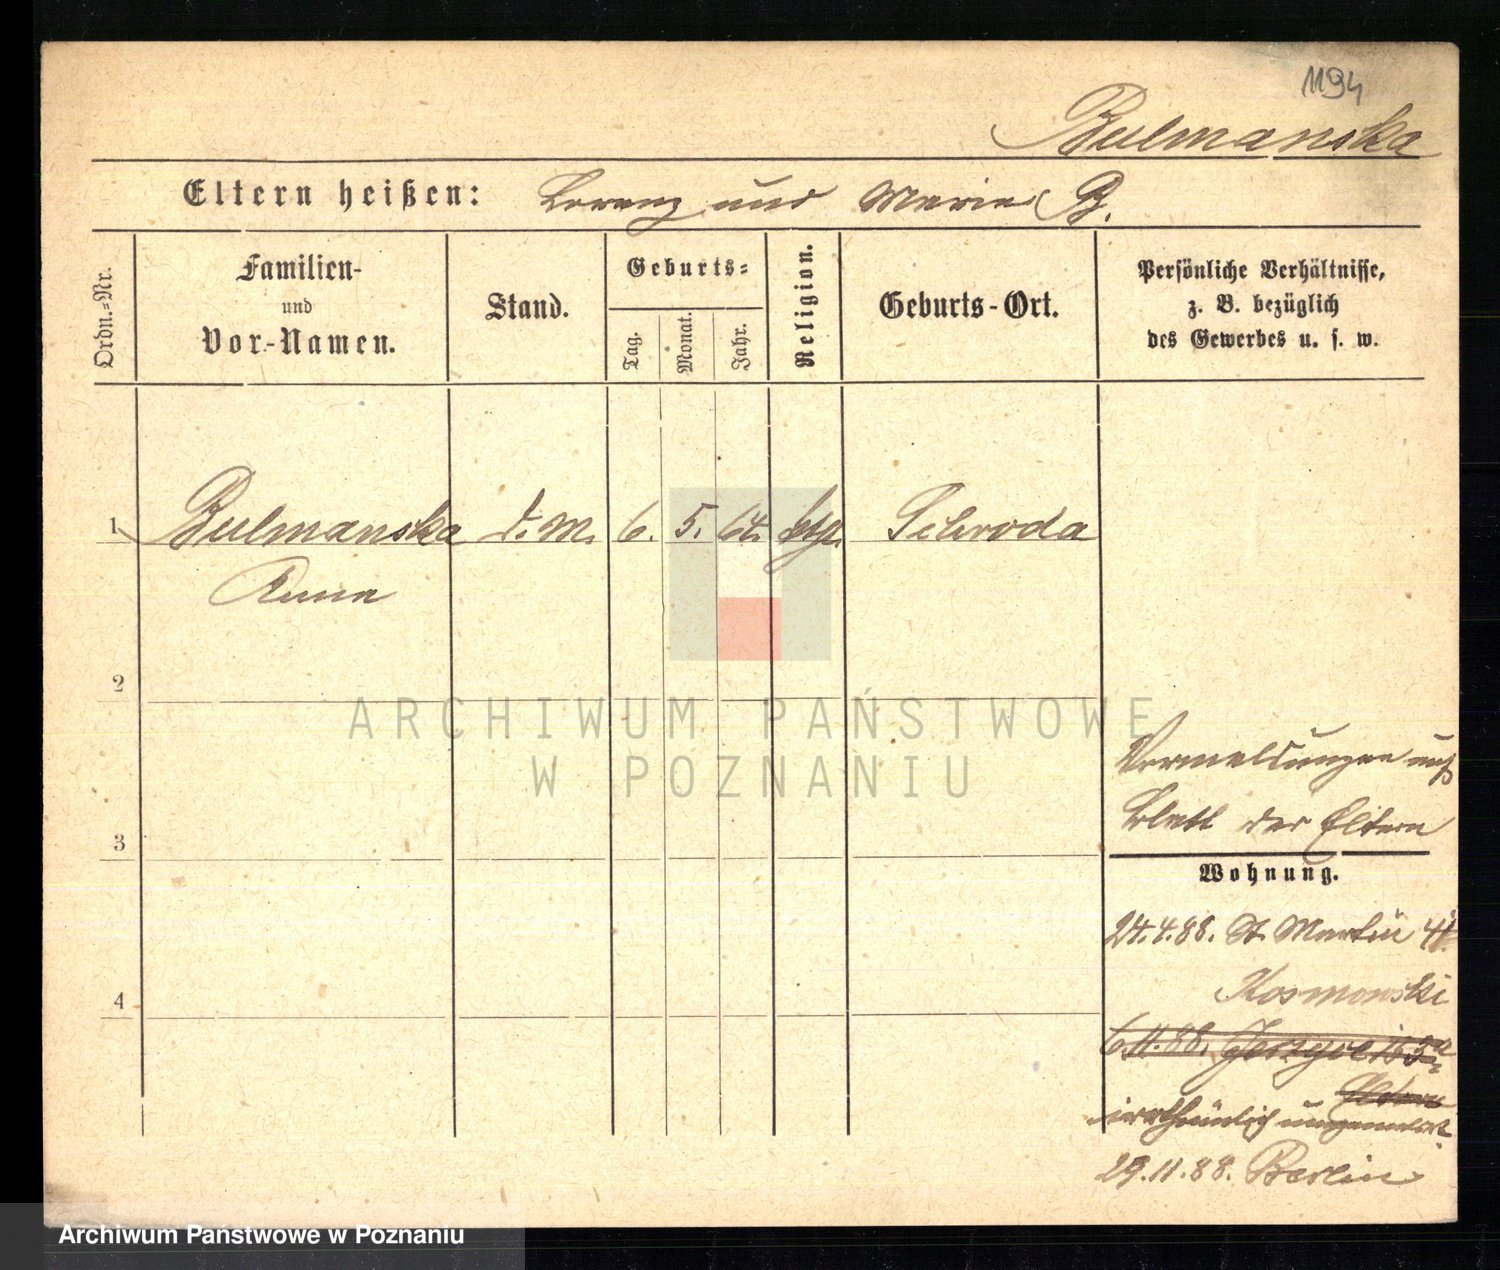 1194
Bulmanska
Eltern heißen: Lorenz und Marie B.
Ordn.-Nr.
Familien-
und
Vor-Namen.
Stand.
Geburts-
Tag.
Monat.
Jahr.
Religion.
Geburts-Ort.
Persönliche Verhältnisse,
z. B. bezüglich
des Gewerbes u. s. w.
1 Bulmanska d. M. 6. 5. 64. ktg. Schroda
Anna
2
3
4
Vormeldungen auf
Blatt der Eltern
Wohnung.
24.4.88. St. Martin 41
Kosmowski
6.11.88.
Eltern
irrthümlich
29.11.88. Berlin
ARCHIWUM PAŃSTWOWE
W POZNANIU
Archiwum Państwowe w Poznaniu